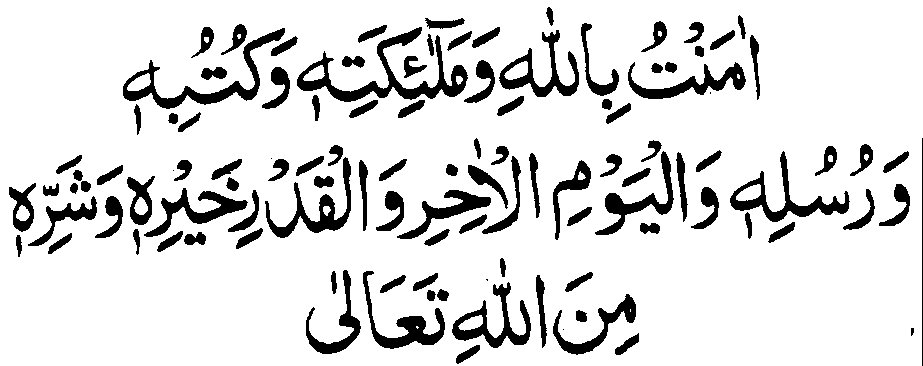 اٰمَنْتُ بِاللّٰهِ وَمَلٰٓئِكَتِهٖ وَكُتُبِهٖ
وَرُسُلِهٖ وَالْيَوْمِ الْاٰخِرِ وَالْقَدْرِ خَيْرِهٖ وَشَرِّهٖ
مِنَ اللّٰهِ تَعَالٰى